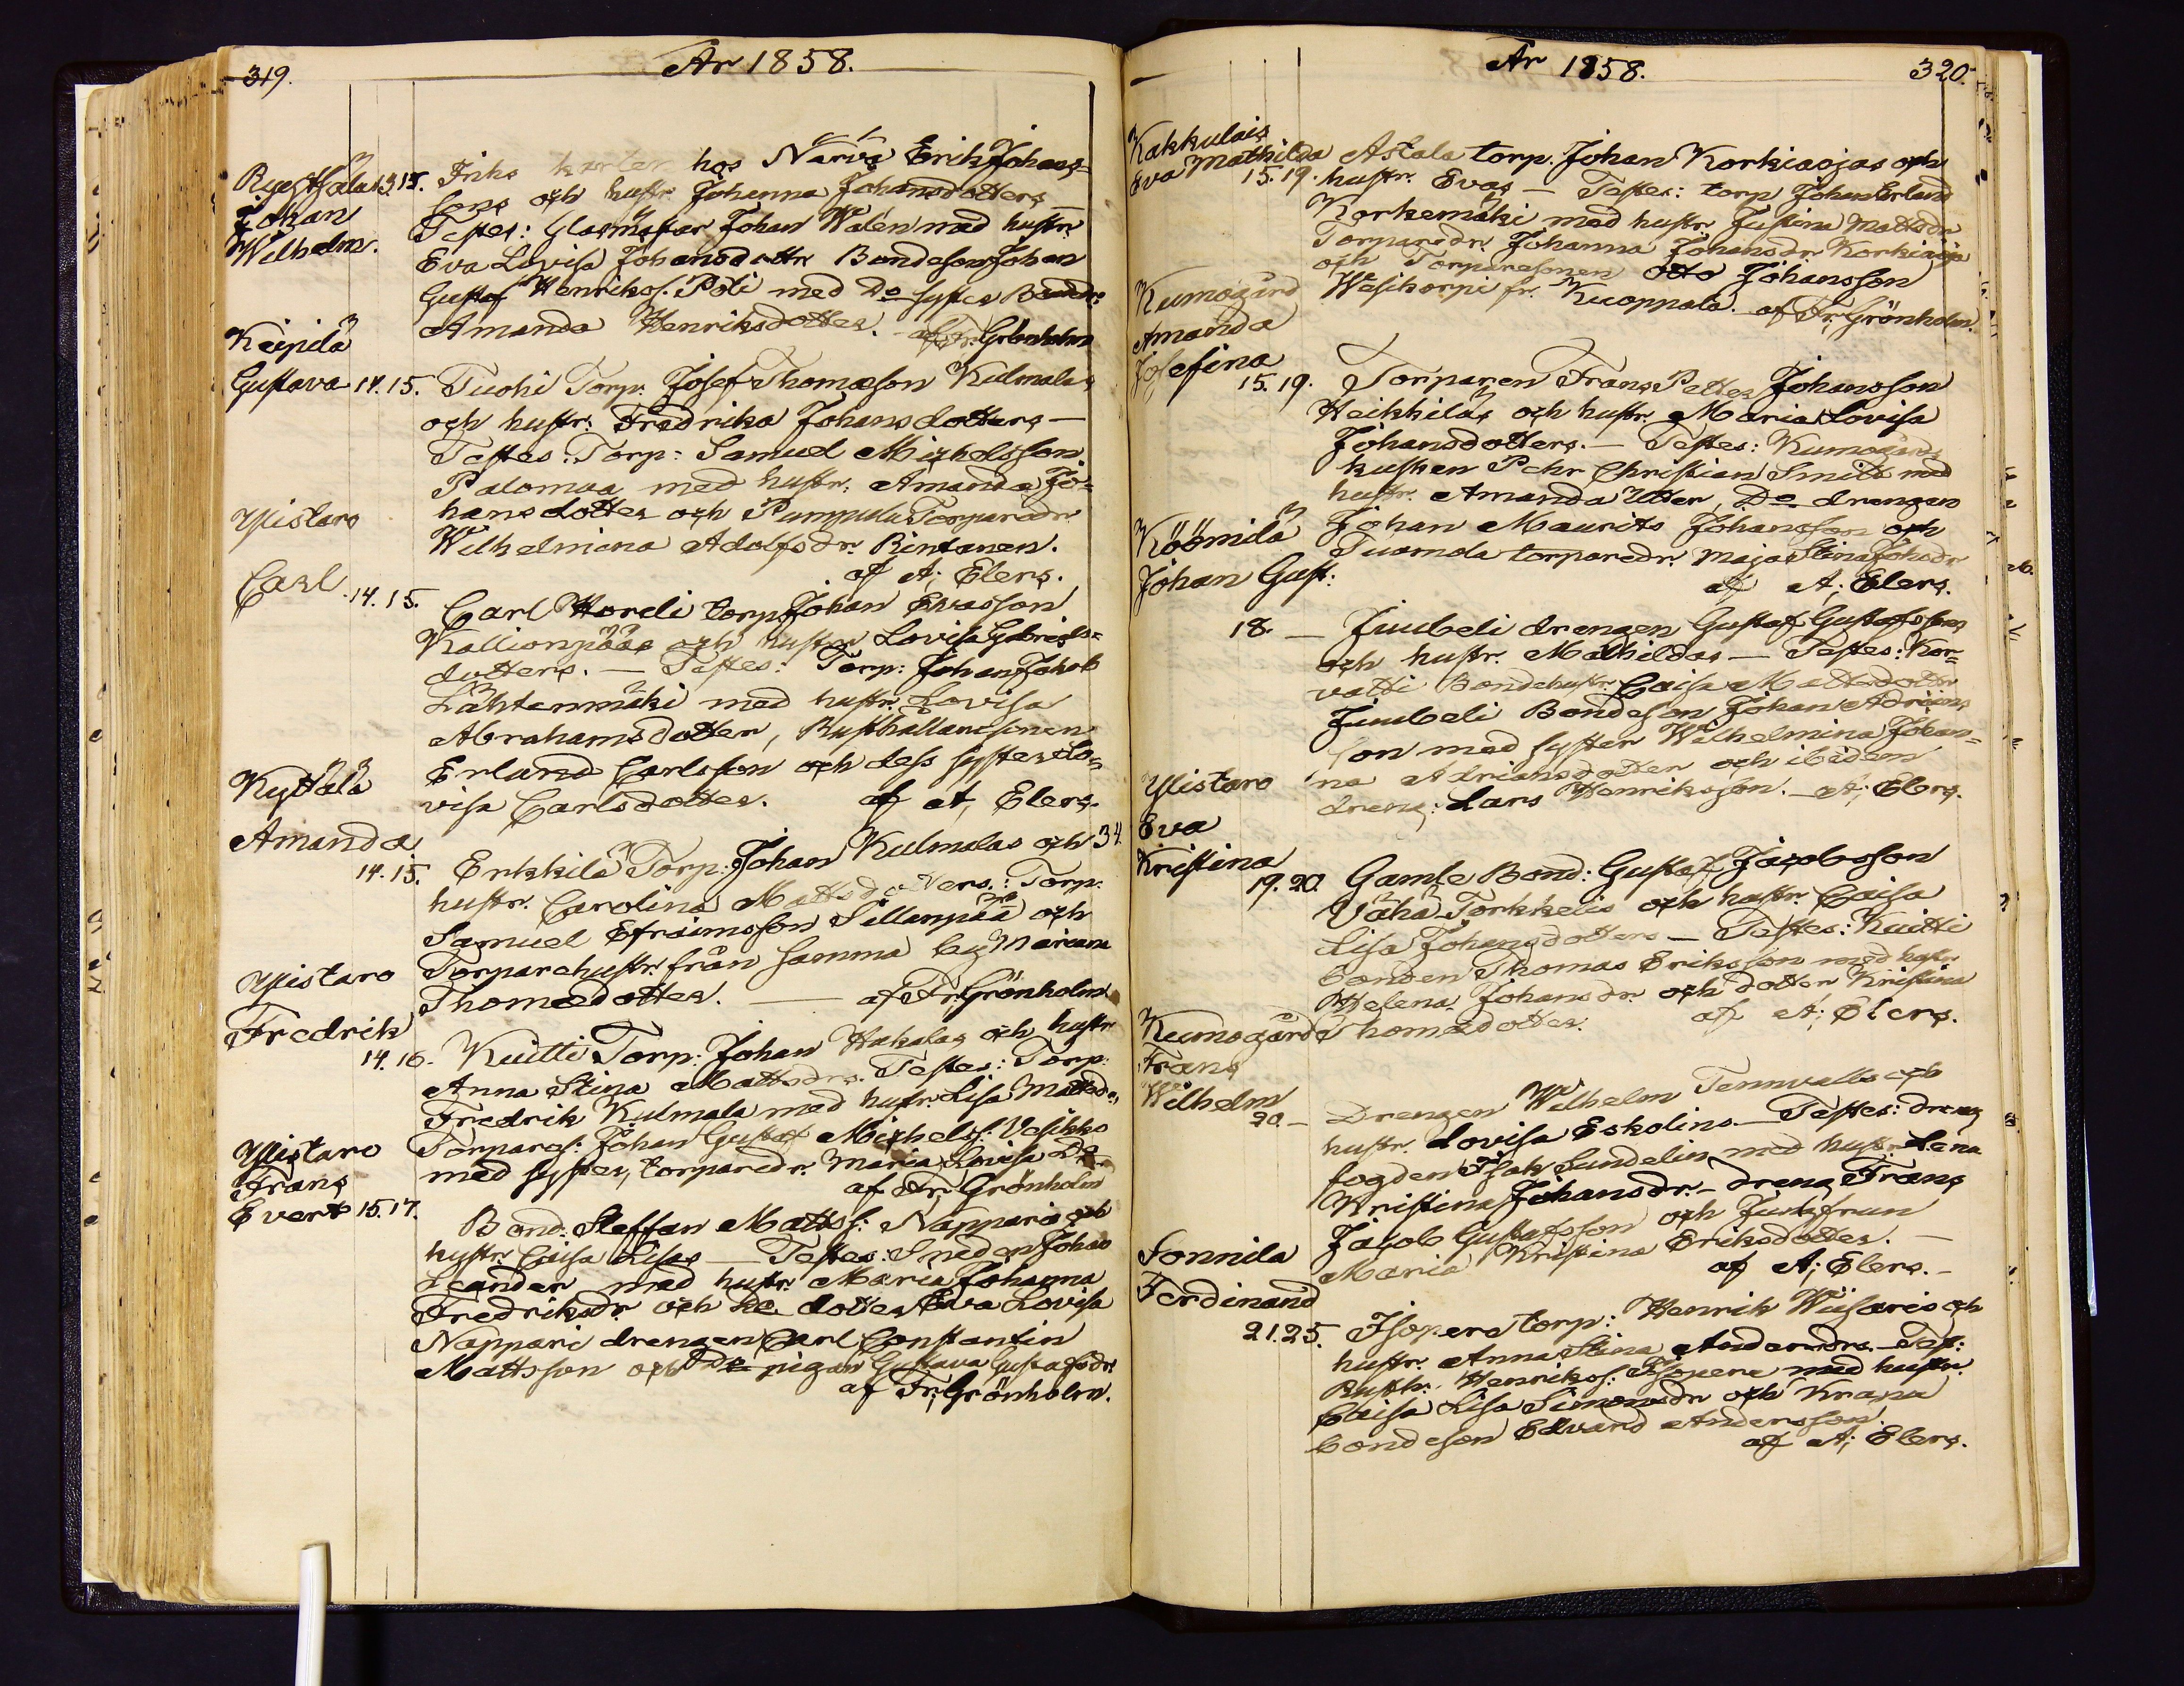 319.
År 1858.
Ryestfälä 13.15. Inhs hos Närvä Erik Johans-
Johan sons och hustr. Johanna Johansdotters
Wilhelm. Testes: Glasmästar Johan Walen med hustr.
Eva Lovisa Johansdottr Bondeson Johan
Gustaf Henrikss. Poli med Do syster Bondedr.
Amanda Henriksdotter. af Fr. Grönholm
Keipilä
Gustava 14.15. Tuohi Torp. Josef Thomasson Kulmalas
och hustr. Fredrika Johansdotters —
Testes: Torp: Samuel Michelsson
Palomaa med hustr. Amanda Jo-
Ylistaro hansdotter och Pumpulu Torparedr.
Wilhelmina Adolfsdr. Rintanen.
af A; Elers.
Carl 14.15. Carl Horeli torp Johan Evasson
Kallionpääs och hustr Lovisa Gabriels-
dotters. — Testes: Torp: Johan Jakob
Lähtenmäki med hustr. Lovisa
Abrahamsdotter, Rusthållaresonen
Erland Carlsson och dess syster Lo-
Kyttälä visa Carlsdotter. af A; Elers.
Amanda
14.15. Erkkilä Torp: Johan Kulmalas och 34.
hustr. Carolina Mattsdotters.: Torp:
Samuel Efraimsson Sillenpää och
Torparehustr. från samma by Mariana
Ylistaro Thomasdotter. — af Fr. Grönholm.
Fredrik
14.16. Kuitti Torp: Johan Hakalas och hustr
Anna Stina Mattsdrs. Testes: Torp:
Fredrik Kulmala med hustr. Lisa Mattsdr,
Ylistaro Torpares. Johan Gustaf Michelss. Vesikko
Frans med syster, torparedr. Maria Lovisa Do
af Fr. Grönholm
Evert 15.17. Bond: Steffan Mattss: Napparis och
hustr. Caisa Lisas — Testes: Smeden Johan
Leander med hustr. Maria Johanna
Fredriksdr. och dotter Eva Lovisa
Nappari drengen Carl Constantin
Mattsson och Do pigan Gustava Gustafsdr.
af Fr; Grönholm.
År 1858. 320.
Kakkulais
Eva Mathilda Astala torp. Johan Korkiaojas och
15.19. hustr. Evas — Testes: torp Johan Erland
Korkemäki med hustr. Justina Mattsdr
Torparedr. Johanna Johansdr Korkiaoja
och Torparesonen Otto Johansson
Kumogård Wesikorpi fr. Kuoppala. af Fr; Grönholm.
Amanda
Josefina
15.19. Torparen Frans Petter Johansson
Heikkiläs och hustr. Maria Lovisa
Johansdotters. — Testes: Kumogårds
kusken Pehr Christian Smitt med
hustr. Amanda Utter, Do drengen
Köömilä Johan Maurits Johansson och
Johan Gust: Tuomola torparedr. Maja Stina Johsdr
af A; Elers.
18. — Juubeli drengen Gustaf Gustafssons
och hustr. Mathildas — Testes: Kor-
vatti Bondehustr. Caisa Mattsdottr
Juubeli Bondeson Johan Adrians-
son med syster Wilhelmina Johan-
na Adriansdotter och ibidem
Ylistaro dreng: Lars Henriksson. — A; Elers.
Eva
Kristina
19.20. Gamle Bond: Gustaf Jacobsson
Vähä Torkkelis och hustr. Caisa
Lisa Johansdotters — Testes: Kuitti
bonden Thomas Eriksson med hustr
Helena Johansdr. och dotter Kristina
Kumogård Thomasdotter. af A; Elers.
Frans
Wilhelm
20. — Drengen Wilhelm Tennvalls och
hustr. Lovisa Eskolins. — Testes: dreng
fogden Isak Sundelin med hustr. Lena
Kristina Johansdr. — dreng Frans
Jacob Gustafsson och Jungfrun
Sonnila Maria Kristina Eriksdotter. —
af A; Elers. —
Ferdinand
21.25. Isopere torp: Henrik Wiisaris och
hustr. Anna Stina Andersdrs. — Test:
Rusth. Henrikss: Isopere med hustr.
Caisa Lisa Simonsdr och Krapu
bondeson Edvard Andersson.
af A; Elers.